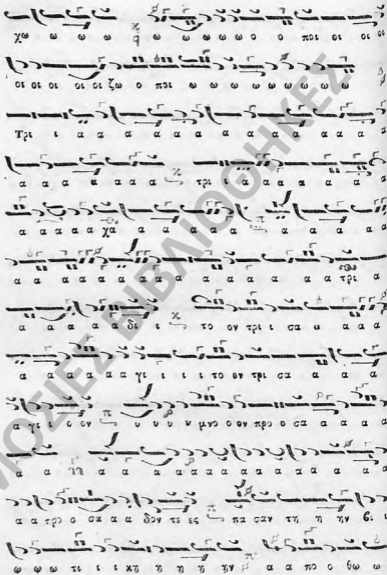 χω ω ω ω ω ω ω ω ω ο ο ποι οι οι οι
οι οι οι οι οι ζω ο ποι ω ω ω ω ω ω ω ω ω ω
Τρι ι α α α α α α α α α α α α α
α α α α α α α τρι ι α α α α α α
α α α α α χα α α α α α α α α α α
α α α α α α α α α α α α α α τρι α
α α α α α α δι ι το ον τρι ι σα α α α
α α α α α α γι ι ι ι το ον τρι σα α α α
α γι ι ο ον υ υ ο υ μνο ο ον προ ο σα α α α
α α α α α α α α α α α α α α
α α προ ο σα α α δον τε ες πα σαν τη η ην βι ι
ω ω ω τι ι ι κη η η η ην α α πο ο θω ω
ΜΟΣΙΕΣ ΒΙΒΛΙΟΘΗΚΕΣ